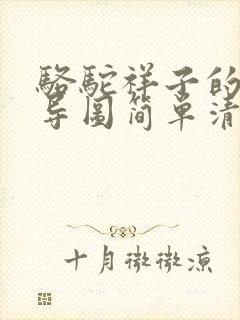 骆驼祥子的
导图简单清
十月微微凉